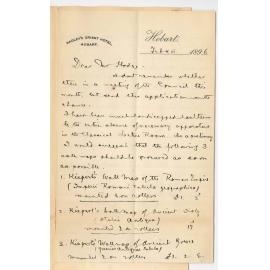 HADLEY'S ORIENT HOTEL,
HOBART.
Hobart,
Feb 1896
Dear Mr Hodge,
I don't remember whether
there is a meeting of the Council this
month, but send this application
above.
I have been much handicapped
to the entire absence of necessary apparatus
in the Classical Lecture Room. As a
I would suggest that the following 3
wall maps should be procured as soon
as possible.
1. Kiepert's Wall Map of the Roman Empire
(Imperii Romani tabula geographica)
mounted on rollers £1.
2. Kiepert's Wall map of Ancient Italy
(Italia Antiqua)
mounted on rollers
3. Kiepert's Wall map of Ancient Greece
(Graeciae Antiquae tabula)
mounted on rollers £1. 2. 6.